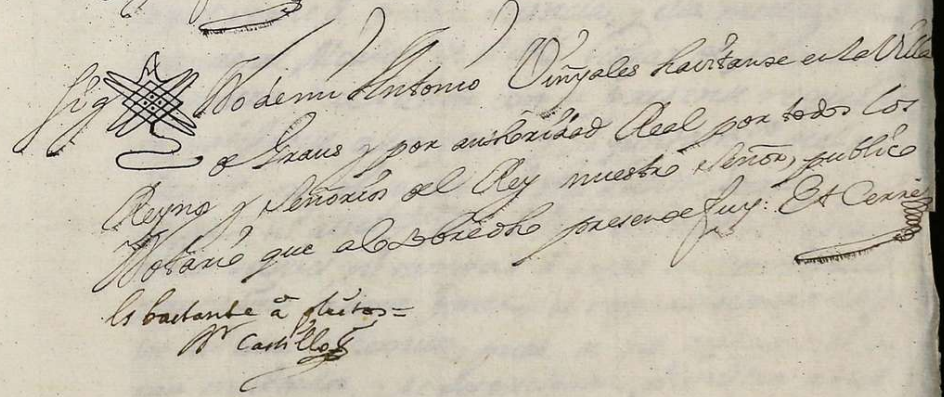 Sig No de mi Antonio Viñyales havitante en la Villa
de Graus y por autoridad Real por todos los
Reynos y Señorios del Rey nuestro Señor, publico
Notario que a lo sobredho presente fuy: Et Cerré
Es bastante â pleitos =
Castillo